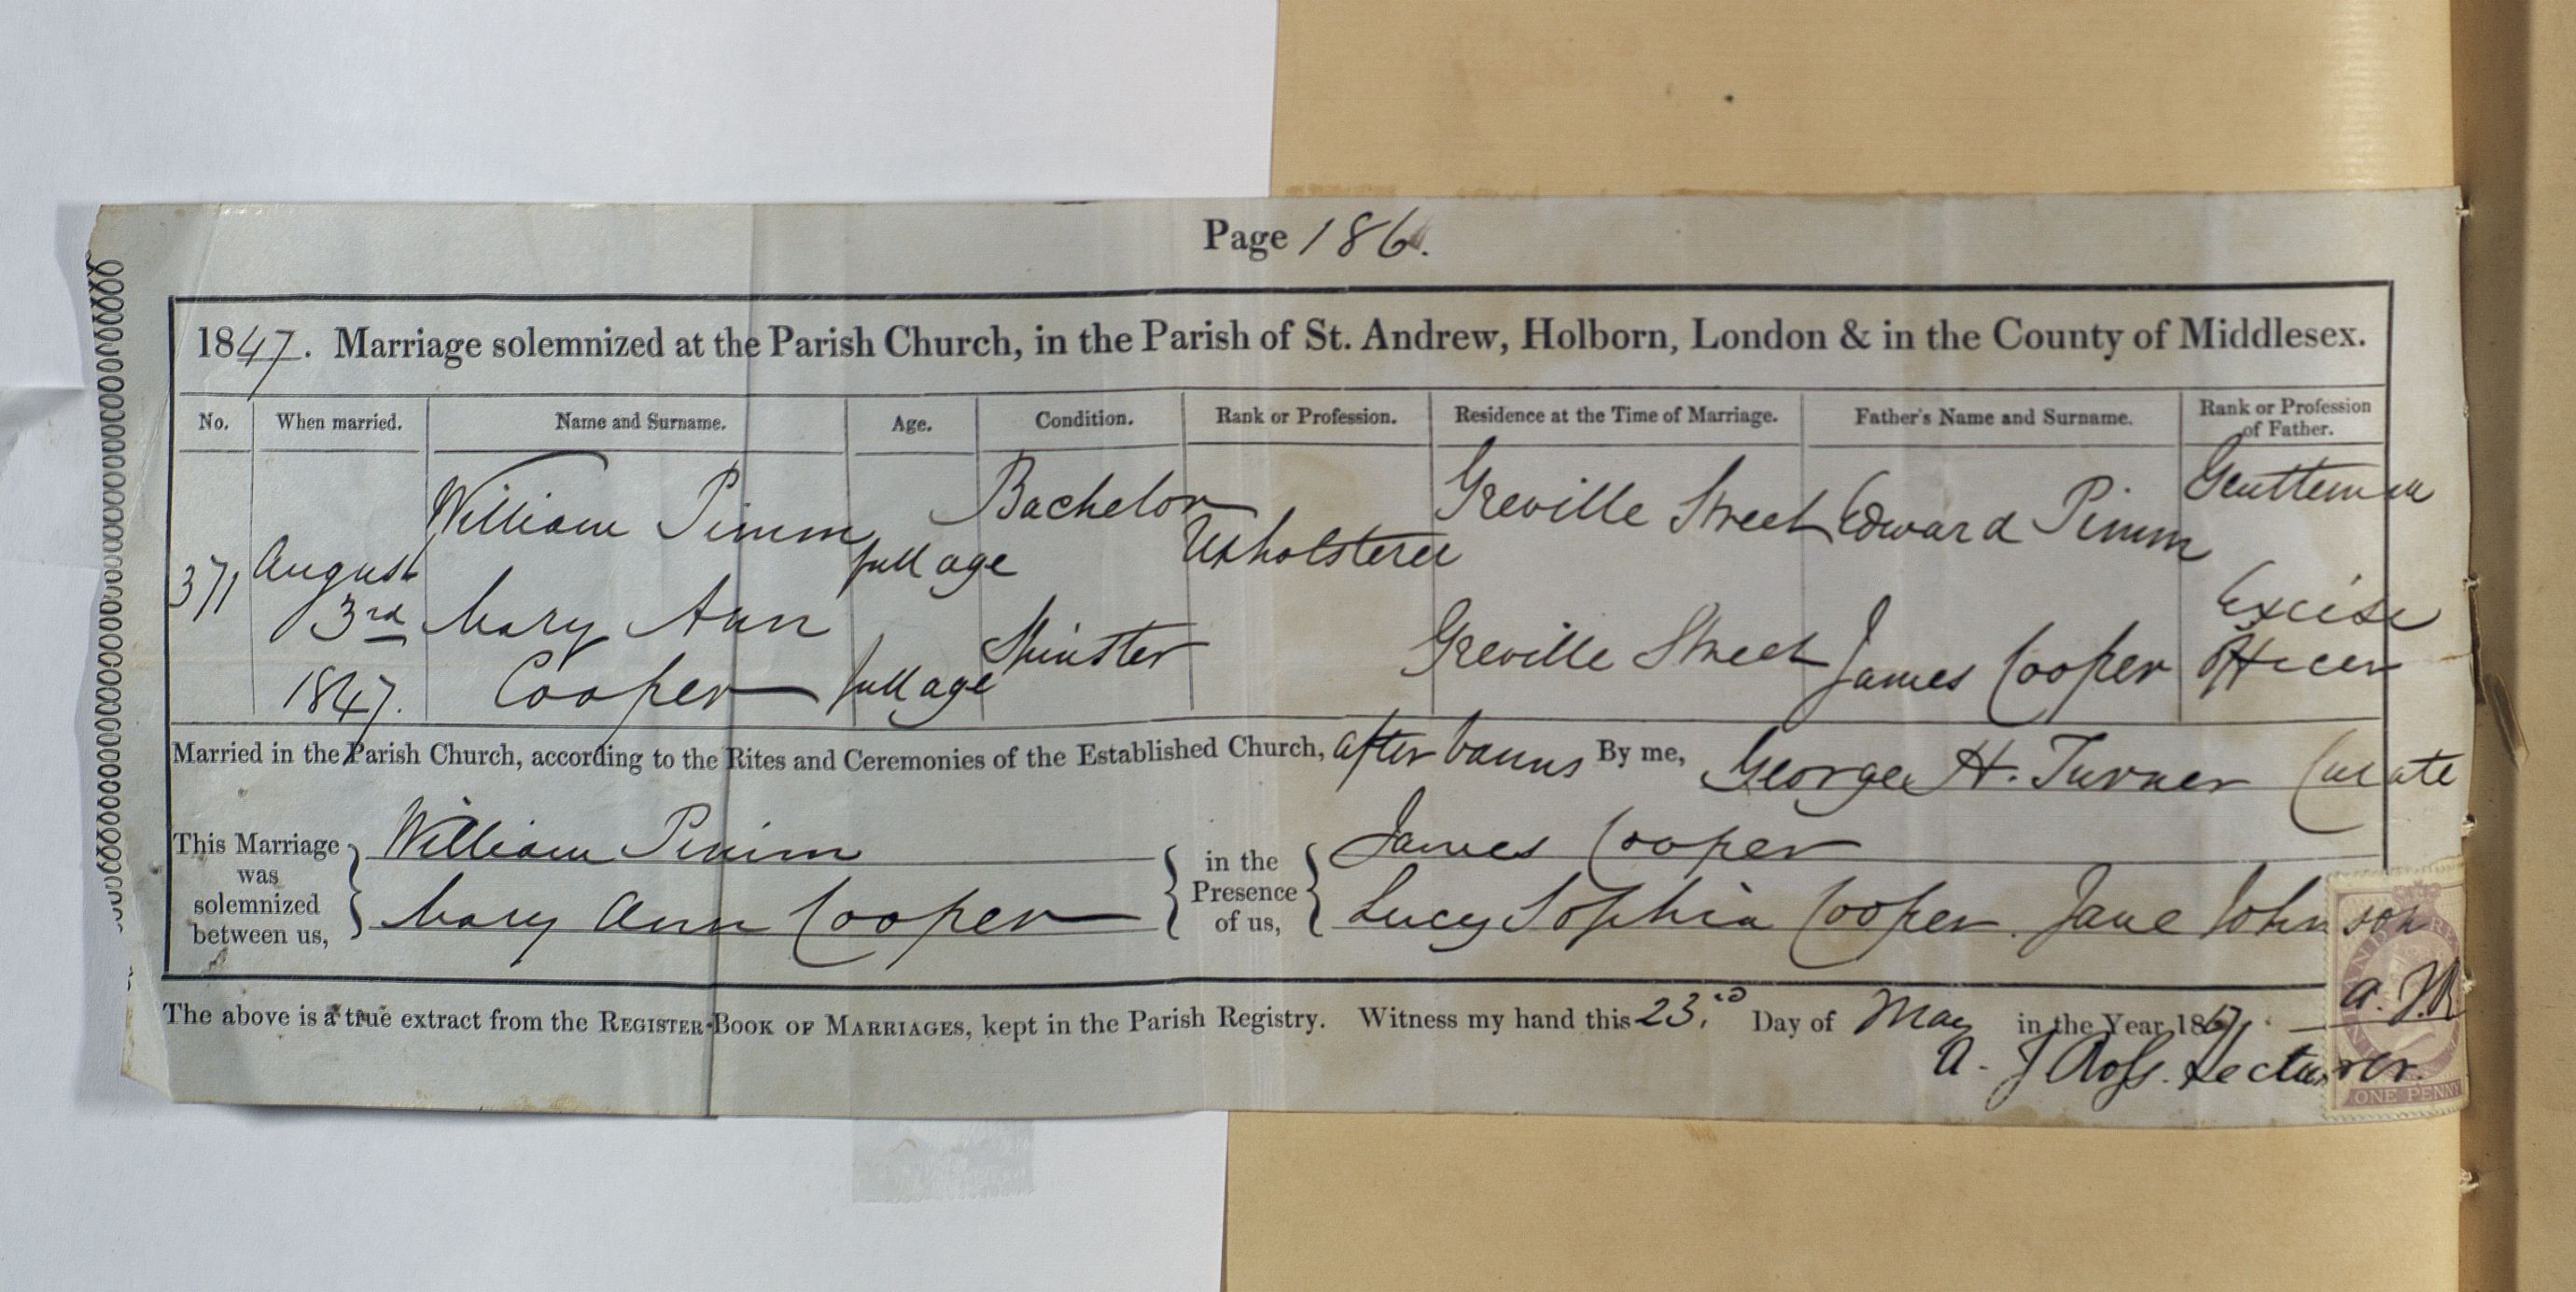 Page 186.
1847. Marriage solemnized at the Parish Church, in the Parish of St. Andrew, Holborn, London & in the County of Middlesex.
No. When married. Name and Surname. Age. Condition. Rank or Profession. Residence at the Time of Marriage. Father's Name and Surname. Rank or Profession of Father.
371 August 3rd 1847. William Pimm full age Bachelor Upholsterer Greville Street Edward Pimm Gentleman
Mary Ann Cooper full age Spinster Greville Street James Cooper Excise Officer
Married in the Parish Church, according to the Rites and Ceremonies of the Established Church, after banns By me, George H. Turner Curate
This Marriage was solemnized between us, William Pimm
Mary Ann Cooper
in the Presence of us, James Cooper
Lucy Sophia Cooper. Jane Johnson
The above is a true extract from the Register-Book of Marriages, kept in the Parish Registry. Witness my hand this 23rd Day of May in the Year 1867.
A. J. Ross. Lecturer.
A. J. R
ONE PENNY